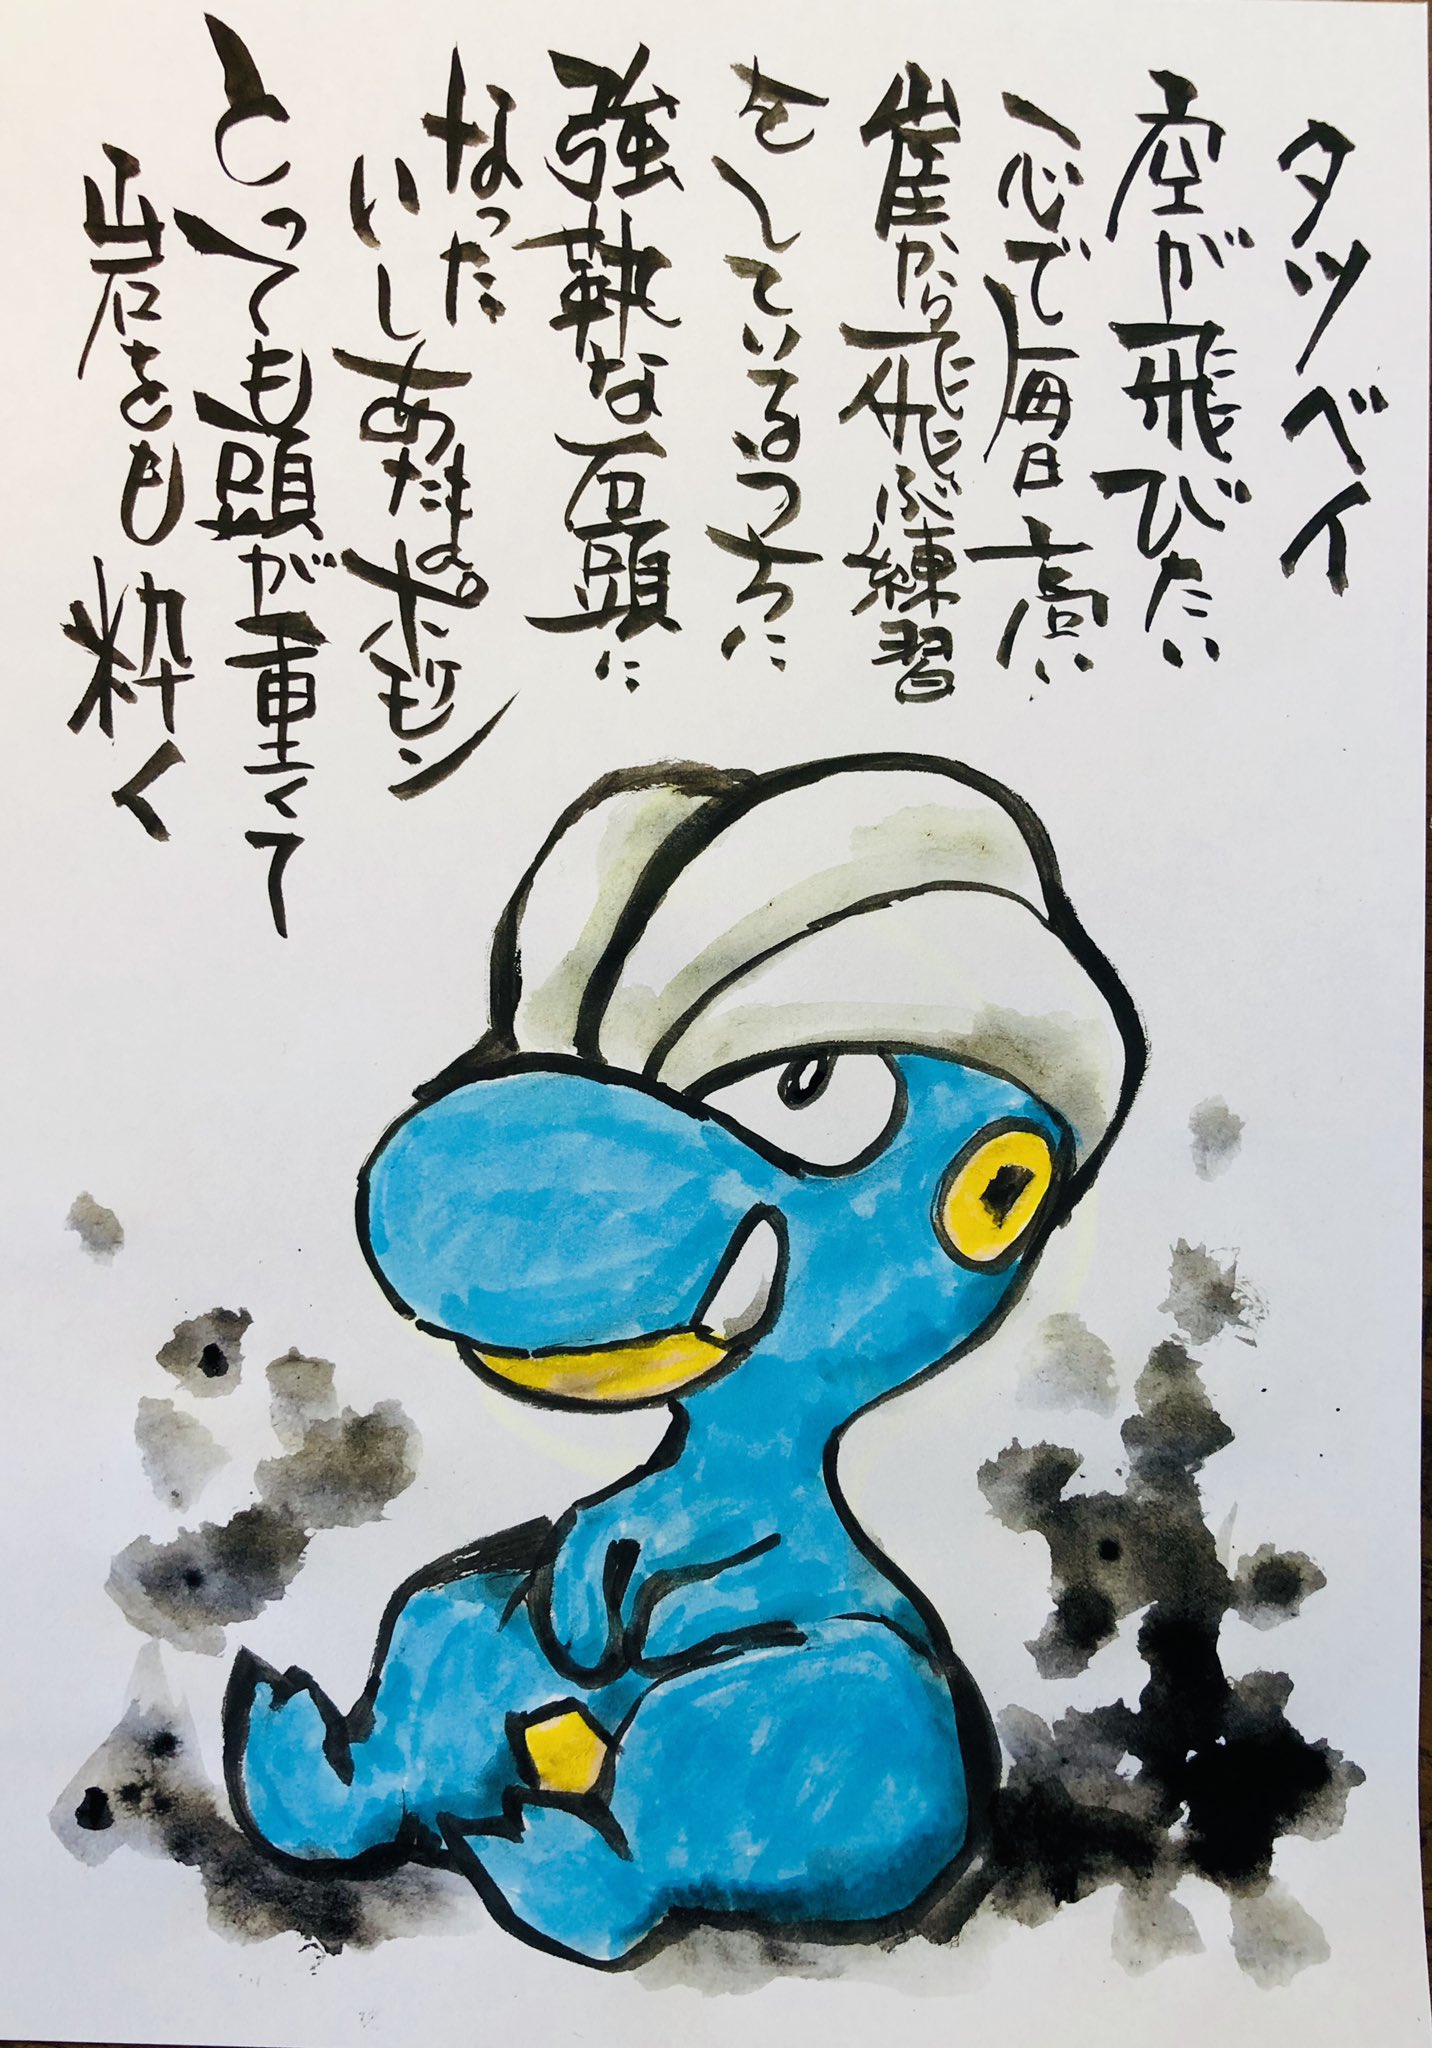 タツベイ
空が飛びたい
一心で毎日高い
崖から飛ぶ練習
をしているうちに
強靭な石頭に
なった
いしあたまポケモン
とっても頭が重くて
岩をも粋く